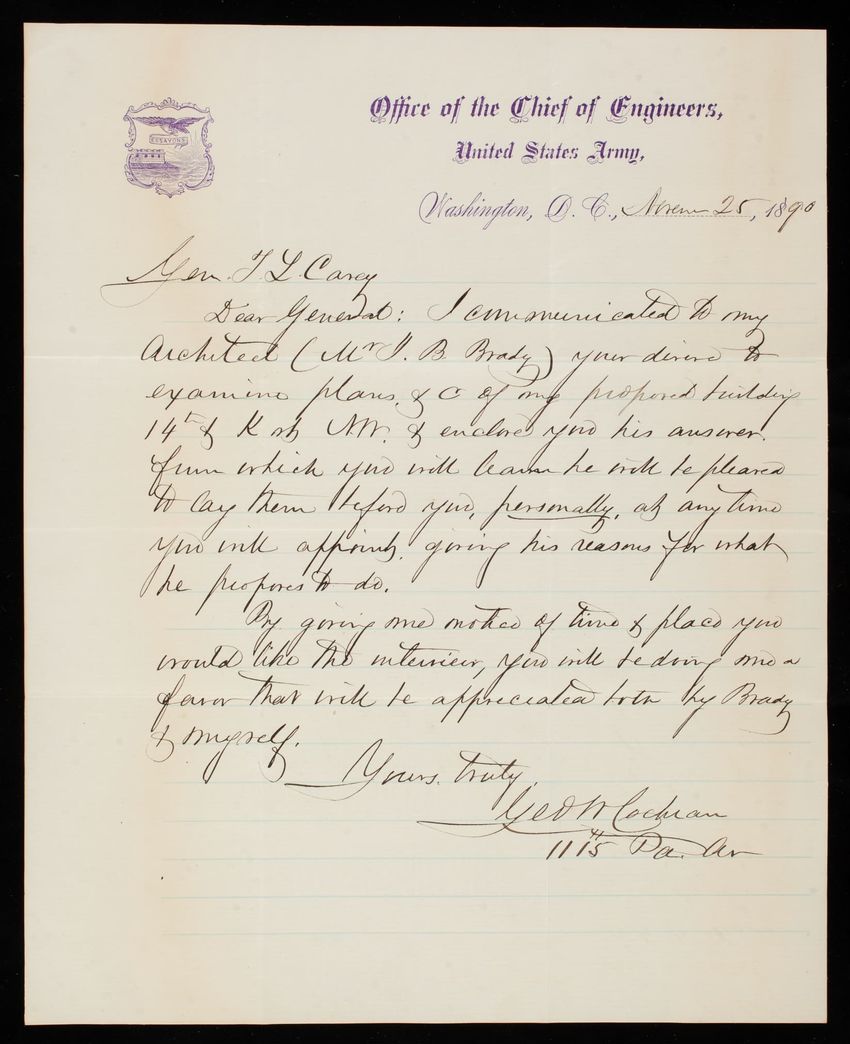 ESSAYONS
Office of the Chief of Engineers,
United States Army,
Washington, D. C., Novem 25, 1890
Gen. T L. Casey
Dear General: I communicated to my
Architect (Mr J. B. Brady) your desire to
examine plans, & C of my proposed building
14th & K sts N.W. & enclose you his answer.
from which you will learn he will be pleased
to lay them before you, personally, at any time
you will appoint, giving his reasons for what
he proposes to do.
By giving me notice of time & place you
would like the interview, you will be doing me a
favor that will be appreciated both by Brady
& myself.
Yours truly,
Geo W Cochran
1115 Pa. Av